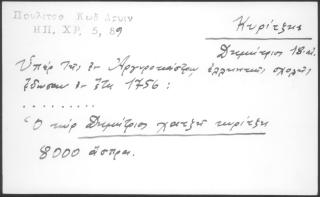 Πουλίτσα Κωδ Δεων
ΗΠ, ΧΡ. 5, 89
Κυρίτζης
Δημήτριος 18 αἰ.
Ὑπὲρ τῆς ἐν Ἀργυροκάστρῳ ἑλληνικῆς σχολῆς
ἔδωσαν ἐν ἔτει 1756:
.........
"Ὁ κὺρ Δημήτριος χατζῆ κυρίτζη
8000 ἄσπρα.